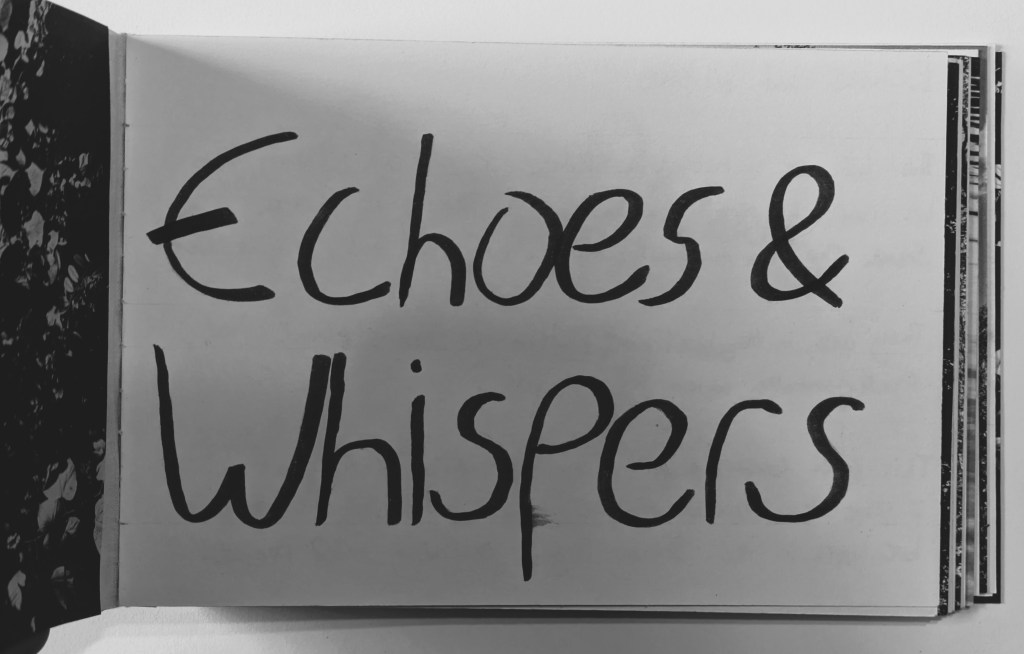 Echoes &
Whispers